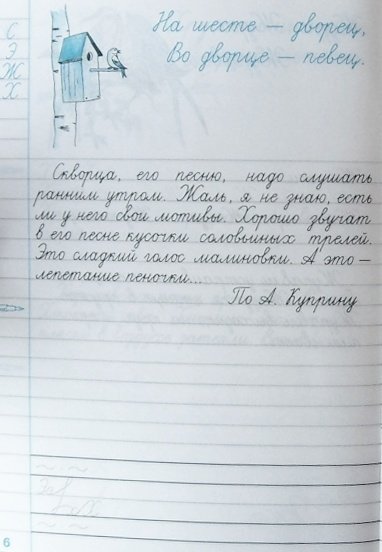 С
Э
Ж
Х
На шесте — дворец,
Во дворце — певец.
Скворца, его песню, надо слушать
ранним утром. Жаль, я не знаю, есть
ли у него свои мотивы. Хорошо звучат
в его песне кусочки соловьиных трелей.
Это сладкий голос малиновки. А это —
лепетание пеночки...
По А. Куприну
6